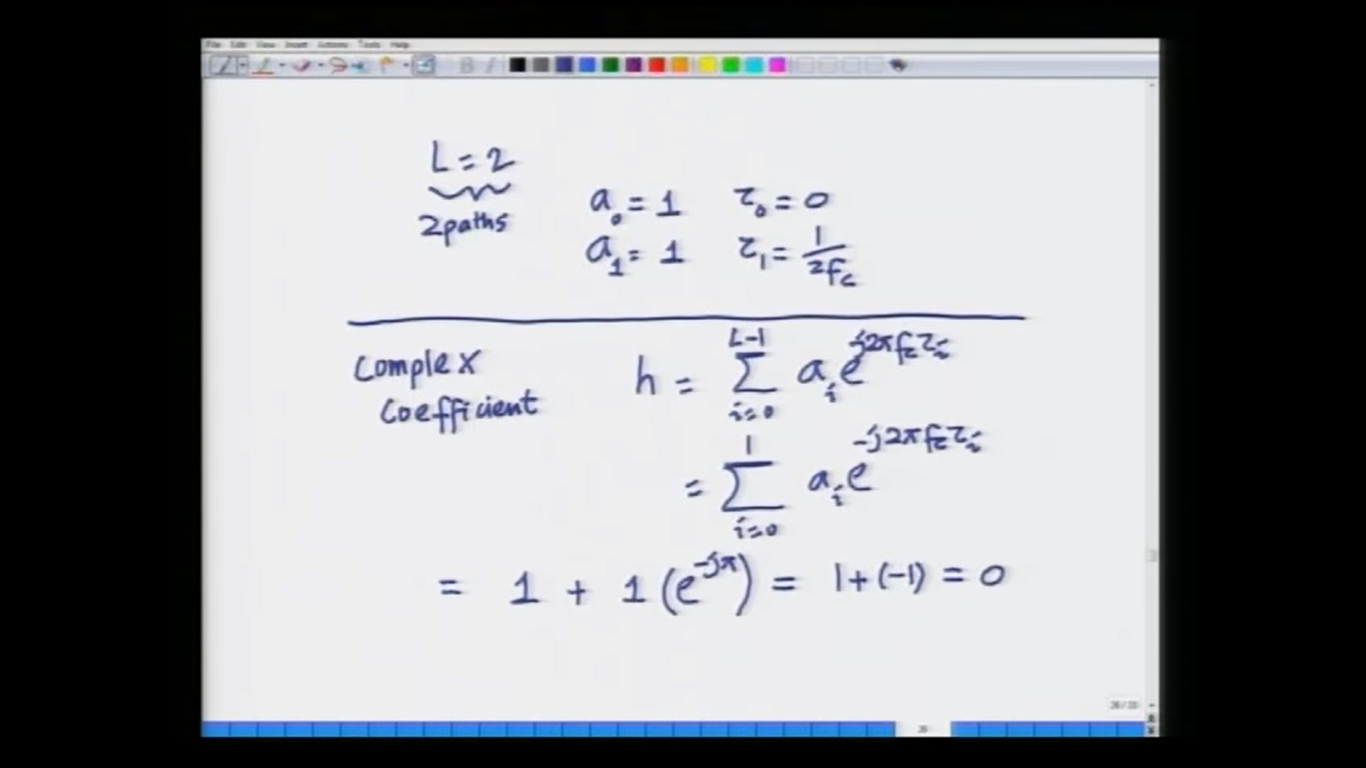 File Edit View Insert Actions Tools Help
L = 2
2 paths
a₀ = 1 τ₀ = 0
a₁ = 1 τ₁ = 1/2fc
Complex Coefficient
h = Σ_{i=0}^{L-1} aᵢ e^{j2πfcτᵢ}
= Σ_{i=0}^{1} aᵢ e^{-j2πfcτᵢ}
= 1 + 1 (e^{-jπ}) = 1 + (-1) = 0